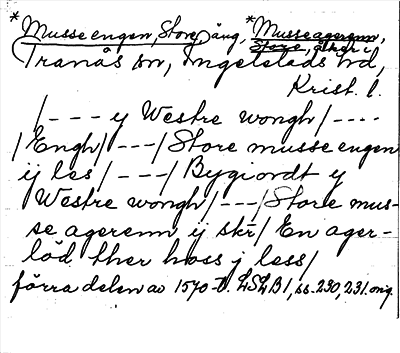 *Musse engen, Store, äng, *Musse agerenn,
Store, åker i
Tranås sn, Ingelstads hd,
Krist. l.
/--- y Westre wongh/----
/Engh/---/Store musse engen
ij les/---/Bygiordt y
Westre wongh/---/Store mus-
se agerenn ij skr/ En ager-
löd ther hoss j less/
förra delen av 1570-t. LSLB1, ss. 230, 231. orig.